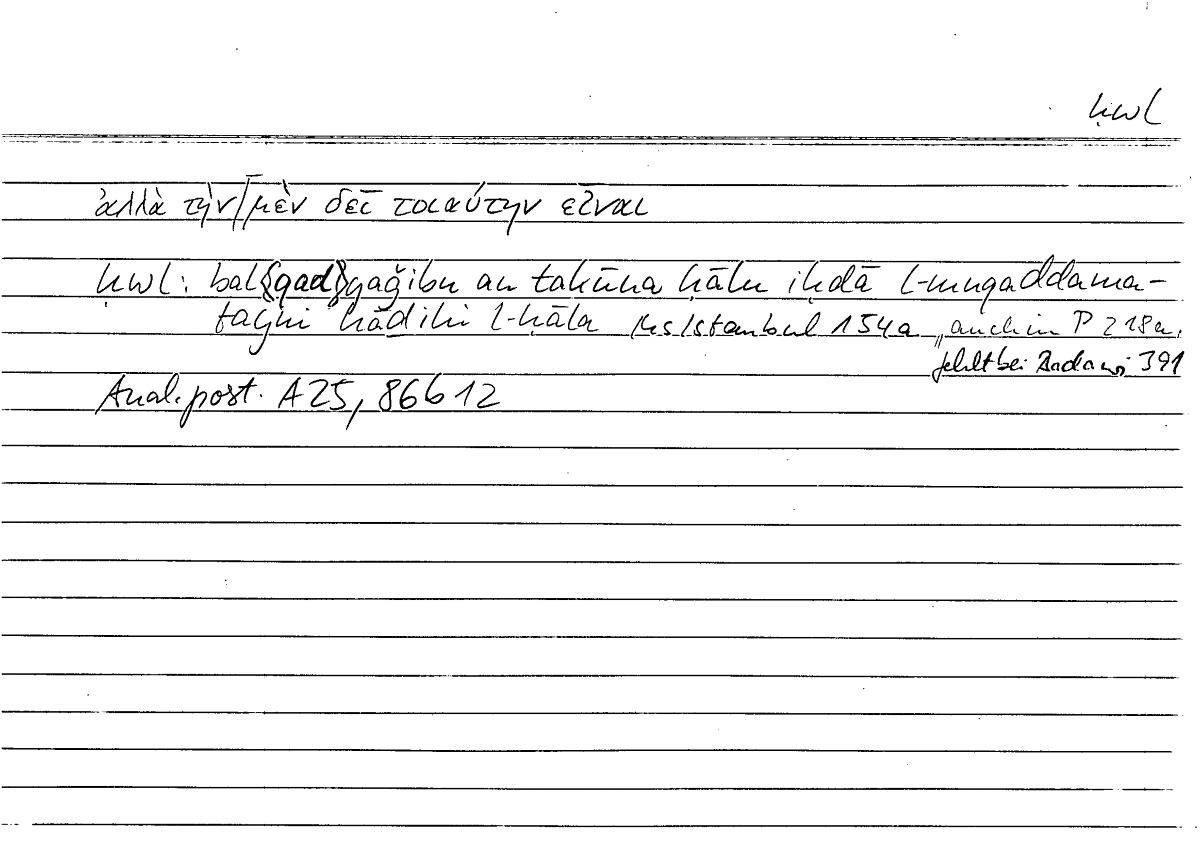 ḥwl
ἀλλὰ τὴν/μὲν δεῖ τοιαύτην εἶναι
ḥwl: bal{qad}yaǧibu an takūna ḥālu iḥdā l-muqaddama-
tayni hādihi l-ḥāla Hs Istanbul 154a, auch in P 218a,
fehlt bei Badawi 391
Anal. post. A 25, 86b12